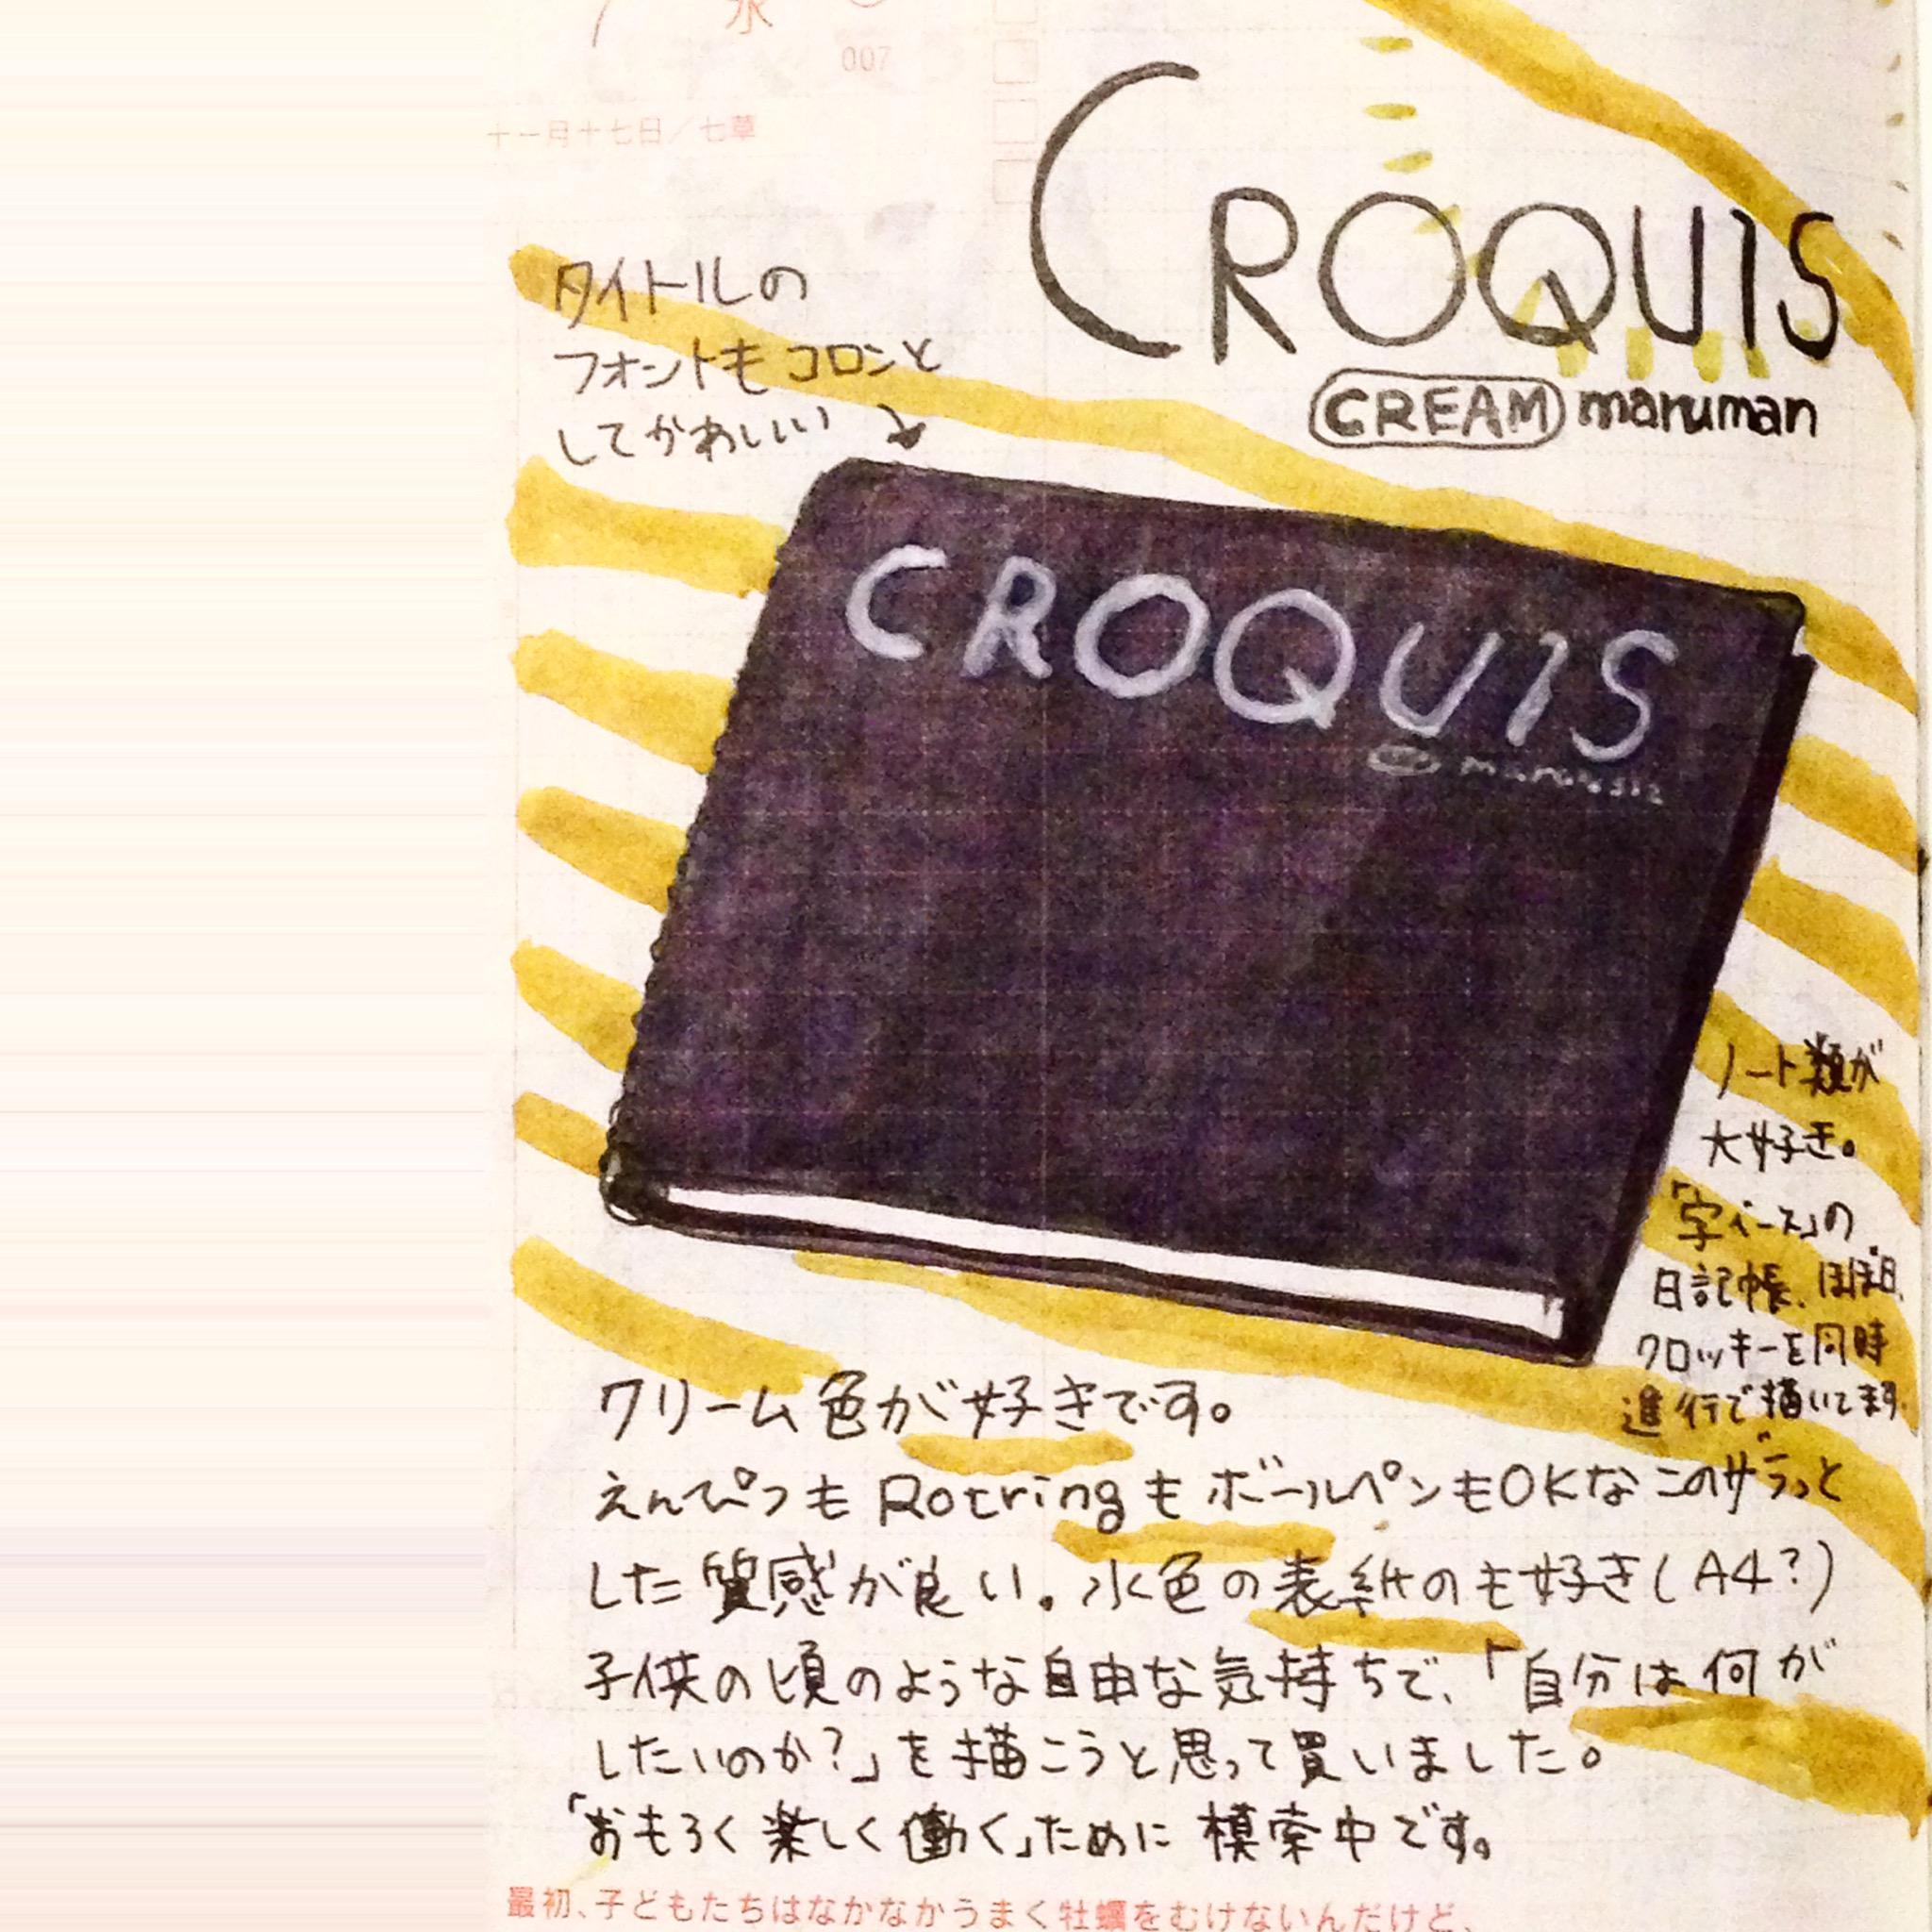 水
007
十一月十七日／七草
CROQUIS
CREAM maruman
タイトルの
フォントもコロンと
してかわいい
CROQUIS
ノート類が
大好き。
「字ベース」の
日記帳、ほぼ日、
クロッキーを同時
進行で描いてます。
クリーム色が好きです。
えんぴつもRotringもボールペンもOKなこのザラっと
した質感が良い。水色の表紙のも好き(A4?)
子供の頃のような自由な気持ちで、「自分は何が
したいのか?」を描こうと思って買いました。
「おもろく楽しく働く」ために模索中です。
最初、子どもたちはなかなかうまく牡蠣をむけないんだけど、